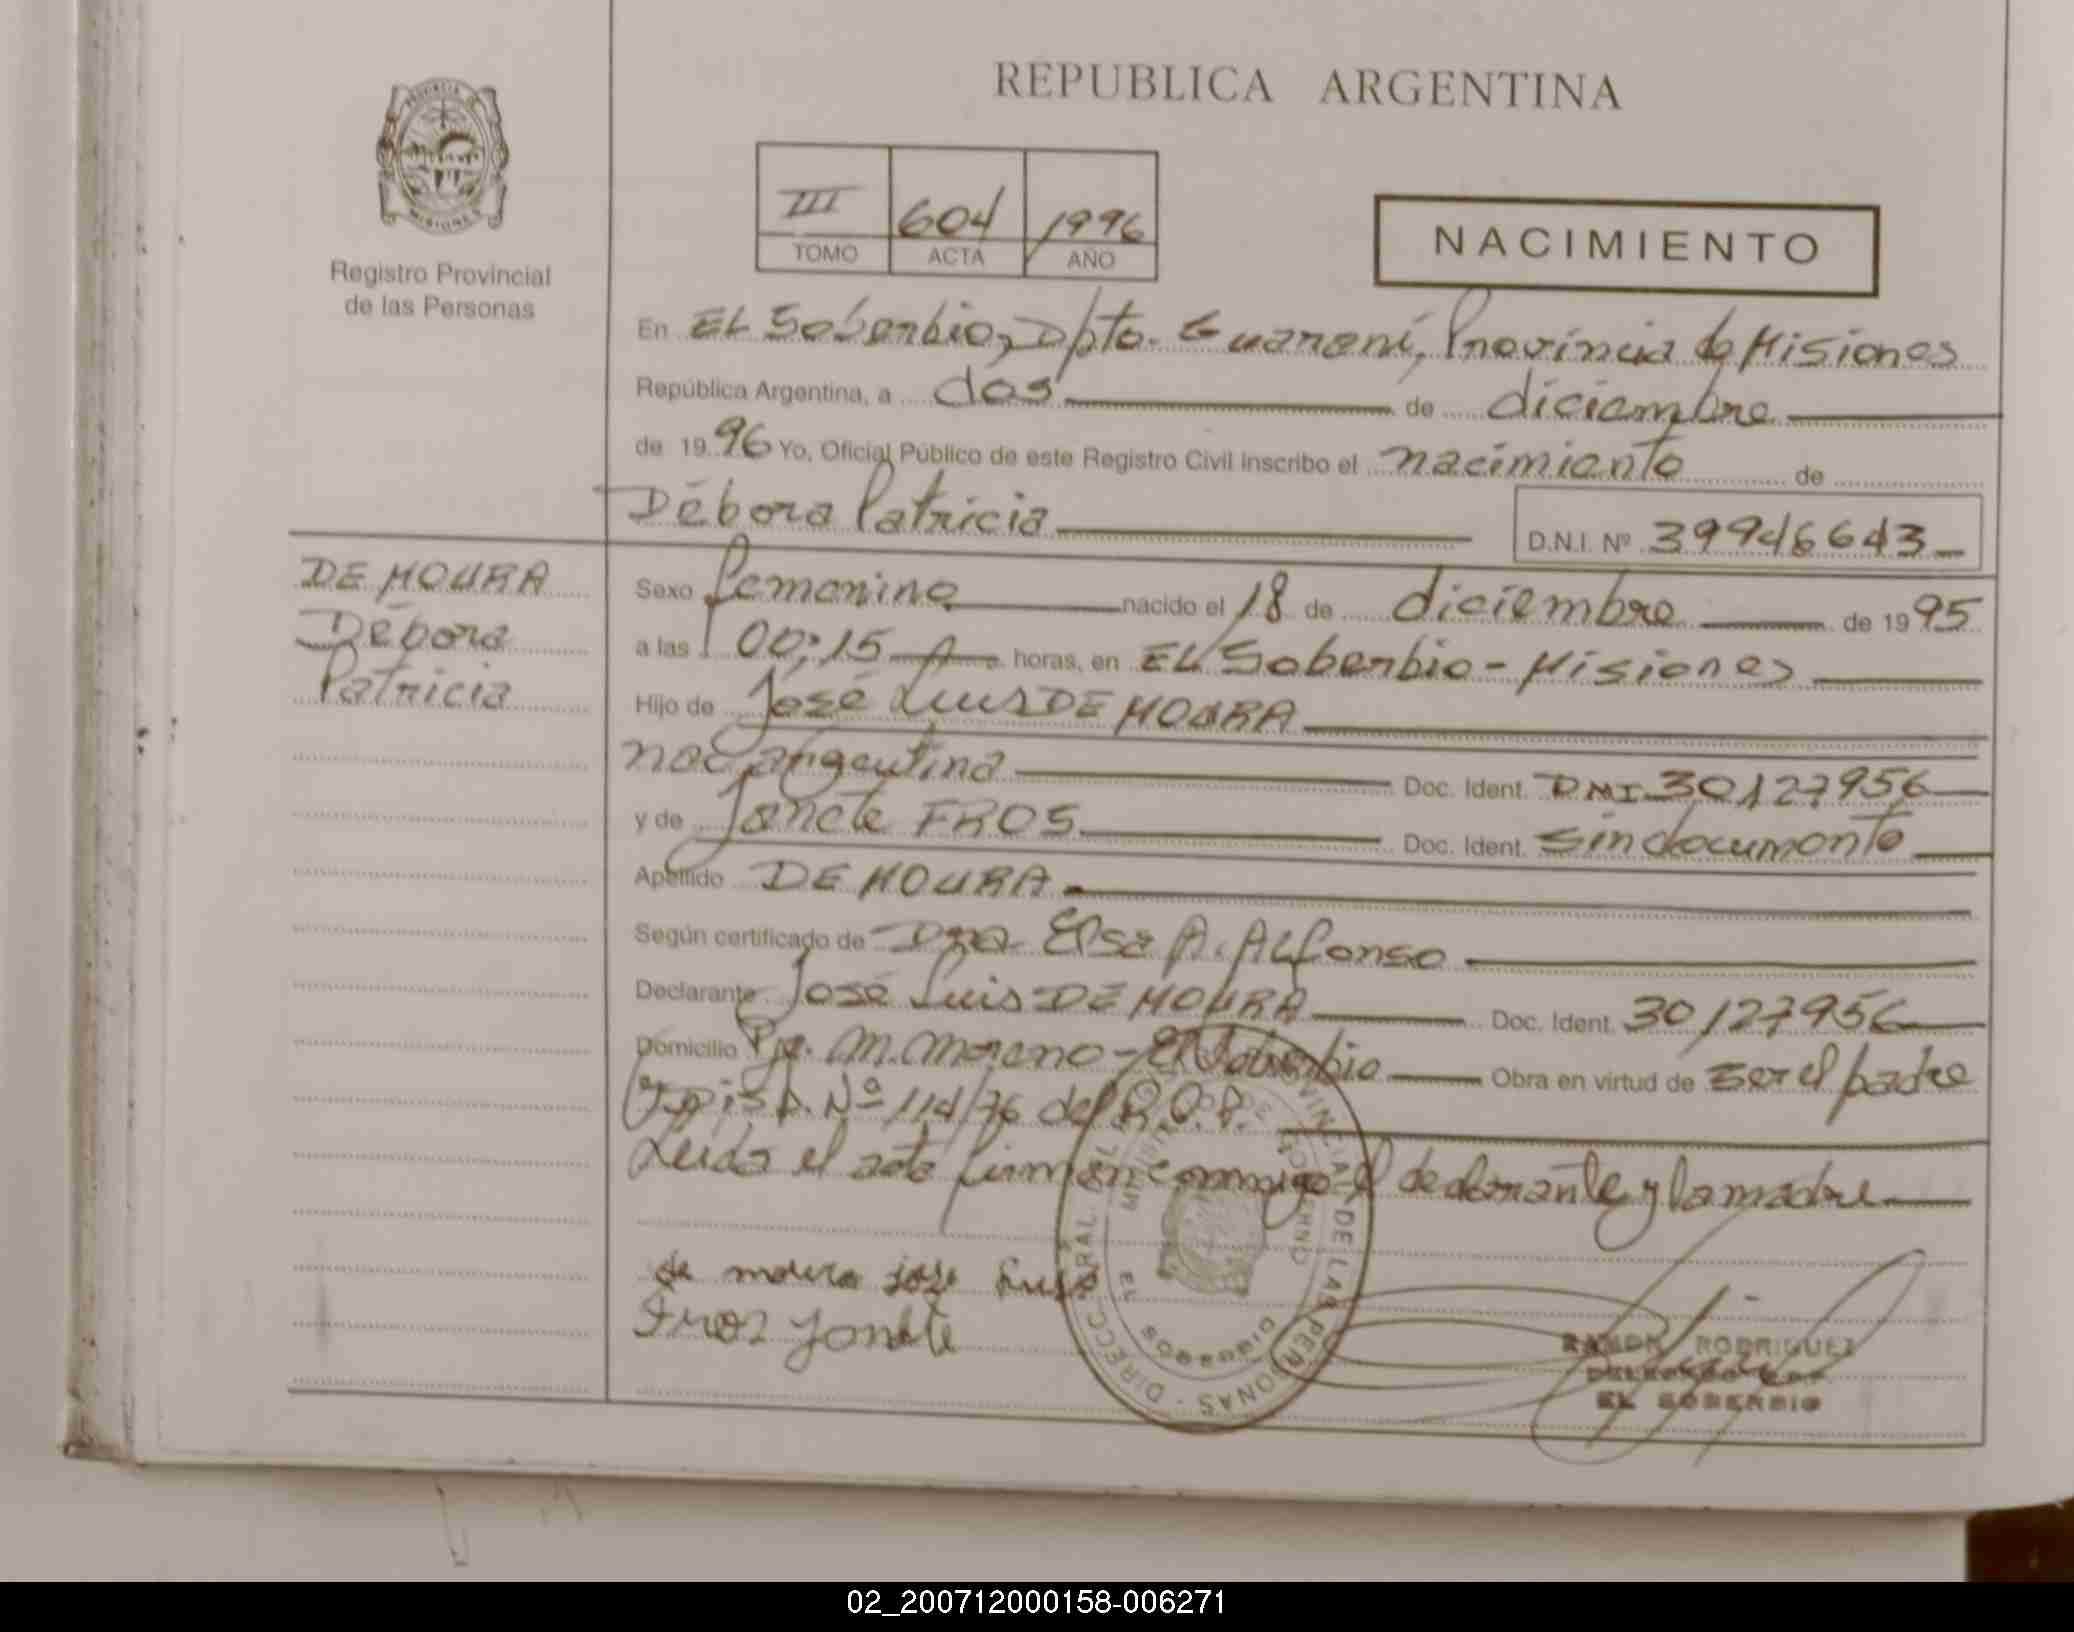 REPUBLICA ARGENTINA
PROVINCIA DE
MISIONES
Registro Provincial
de las Personas
III 604 1996
TOMO ACTA AÑO
NACIMIENTO
En EL Soberbio, Dpto. Guaraní, Provincia de Misiones
República Argentina, a dos de diciembre
de 1996 Yo, Oficial Público de este Registro Civil inscribo el nacimiento de
Débora Patricia
D.N.I. Nº 39946643
DE MOURA
Débora
Patricia
Sexo femenino nacido el 18 de diciembre de 1995
a las 00:15 horas, en EL Soberbio - Misiones
Hijo de José Luis DE MOURA
nac argentina Doc. Ident. DNI 30127956
y de Janete FROS Doc. Ident. sin documento
Apellido DE MOURA
Según certificado de Dra. Elsa A. ALfonso
Declarante José Luis DE MOURA Doc. Ident. 30127956
Domicilio Pje. M. Moreno - El Soberbio Obra en virtud de ser el padre
y Disp. Nº 114/76 del R.P.P.
Leída el acta firman conmigo el declarante y la madre
de moura jose Luis
Froz Janete
DIRECC. GRAL. DEL REG. PROVINCIAL DE LAS PERSONAS
MINISTERIO DE GOBIERNO
EL SOBERBIO
RAMON RODRIGUEZ
DELEGADO
EL SOBERBIO
02_200712000158-006271